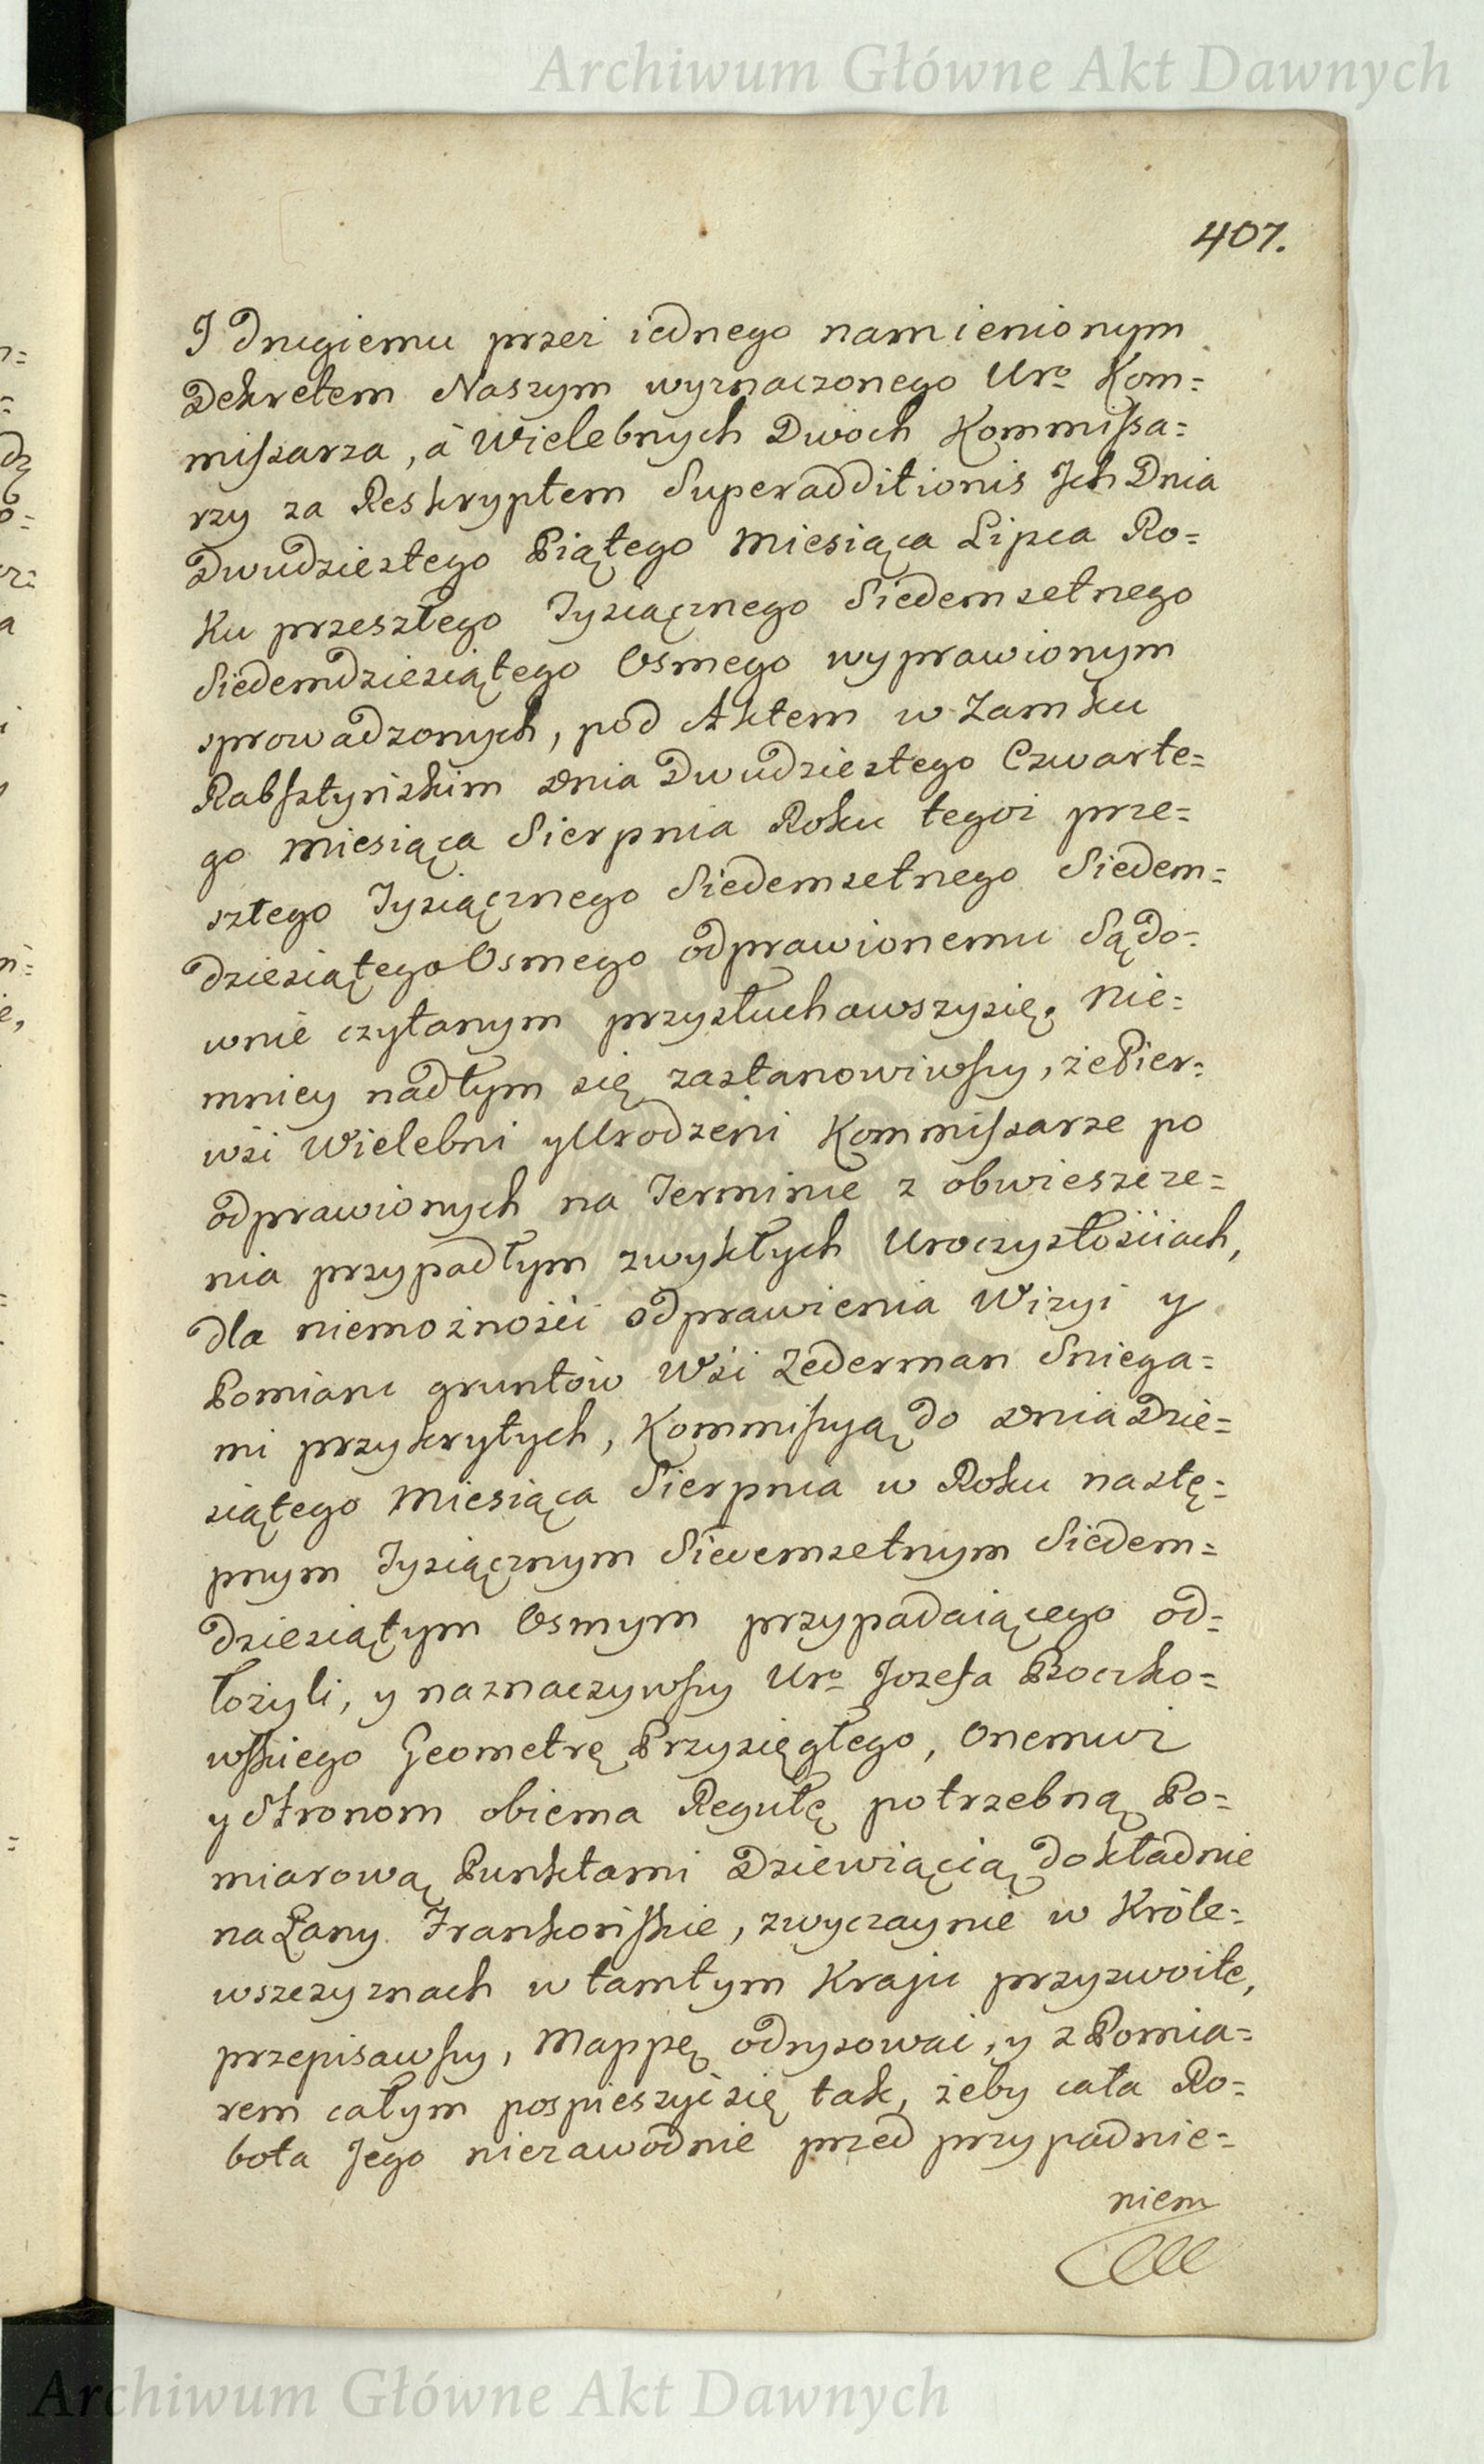 Archiwum Główne Akt Dawnych
407.
I drugiemu przez iednego namienionym
Dekretem Naszym wyznaczonego Uro Kom=
missarza, à Wielebnych Dwoch Kommissa=
rzy za Reskryptem Superadditionis Ich Dnia
Dwudziestego Piątego Miesiąca Lipca Ro=
ku przeszłego Tysiącznego Siedemsetnego
Siedemdziesiątego Osmego wyprawionym
sprowadzonych, pod Aktem w Zamku
Rabsztyńskim dnia Dwudziestego Czwarte=
go Miesiąca Sierpnia Roku tegoż prze=
szłego Tysiącznego Siedemsetnego Siedem=
dziesiątego Osmego odprawionemu Sądo=
wnie czytanym przysłuchawszysię, Nie=
mniey nadtym się zastanowiwszy, że Pier=
wsi Wielebni y Urodzeni Kommissarze po
odprawionych na Terminie z obwieszcze=
nia przypadłym zwykłych Uroczystościach,
dla niemożności odprawienia Wizyi y
Pomiaru gruntów Wsi Zederman Sniega=
mi przykrytych, Kommissyą do dnia Dzie=
siątego Miesiąca Sierpnia w Roku nastę=
pnym Tysiącznym Siedemsetnym Siedem=
dziesiątym Osmym przypadaiącego od=
łożyli, y naznaczywszy Uro Jozefa Boczko=
wskiego Geometrę Przysięgłego, Onemuż
y Stronom obiema Regułę potrzebną Po=
miarową Punktami Dziewiącią dokładnie
na Łany Frankońskie, zwyczaynie w Króle=
wszczyznach w tamtym Kraju przyzwoite,
przepisawszy, Mappę odrysowac, y z Pomia=
rem całym pospieszyć się tak, żeby cała Ro=
bota Jego niezawodnie przed przypadnie=
niem
Archiwum Główne Akt Dawnych